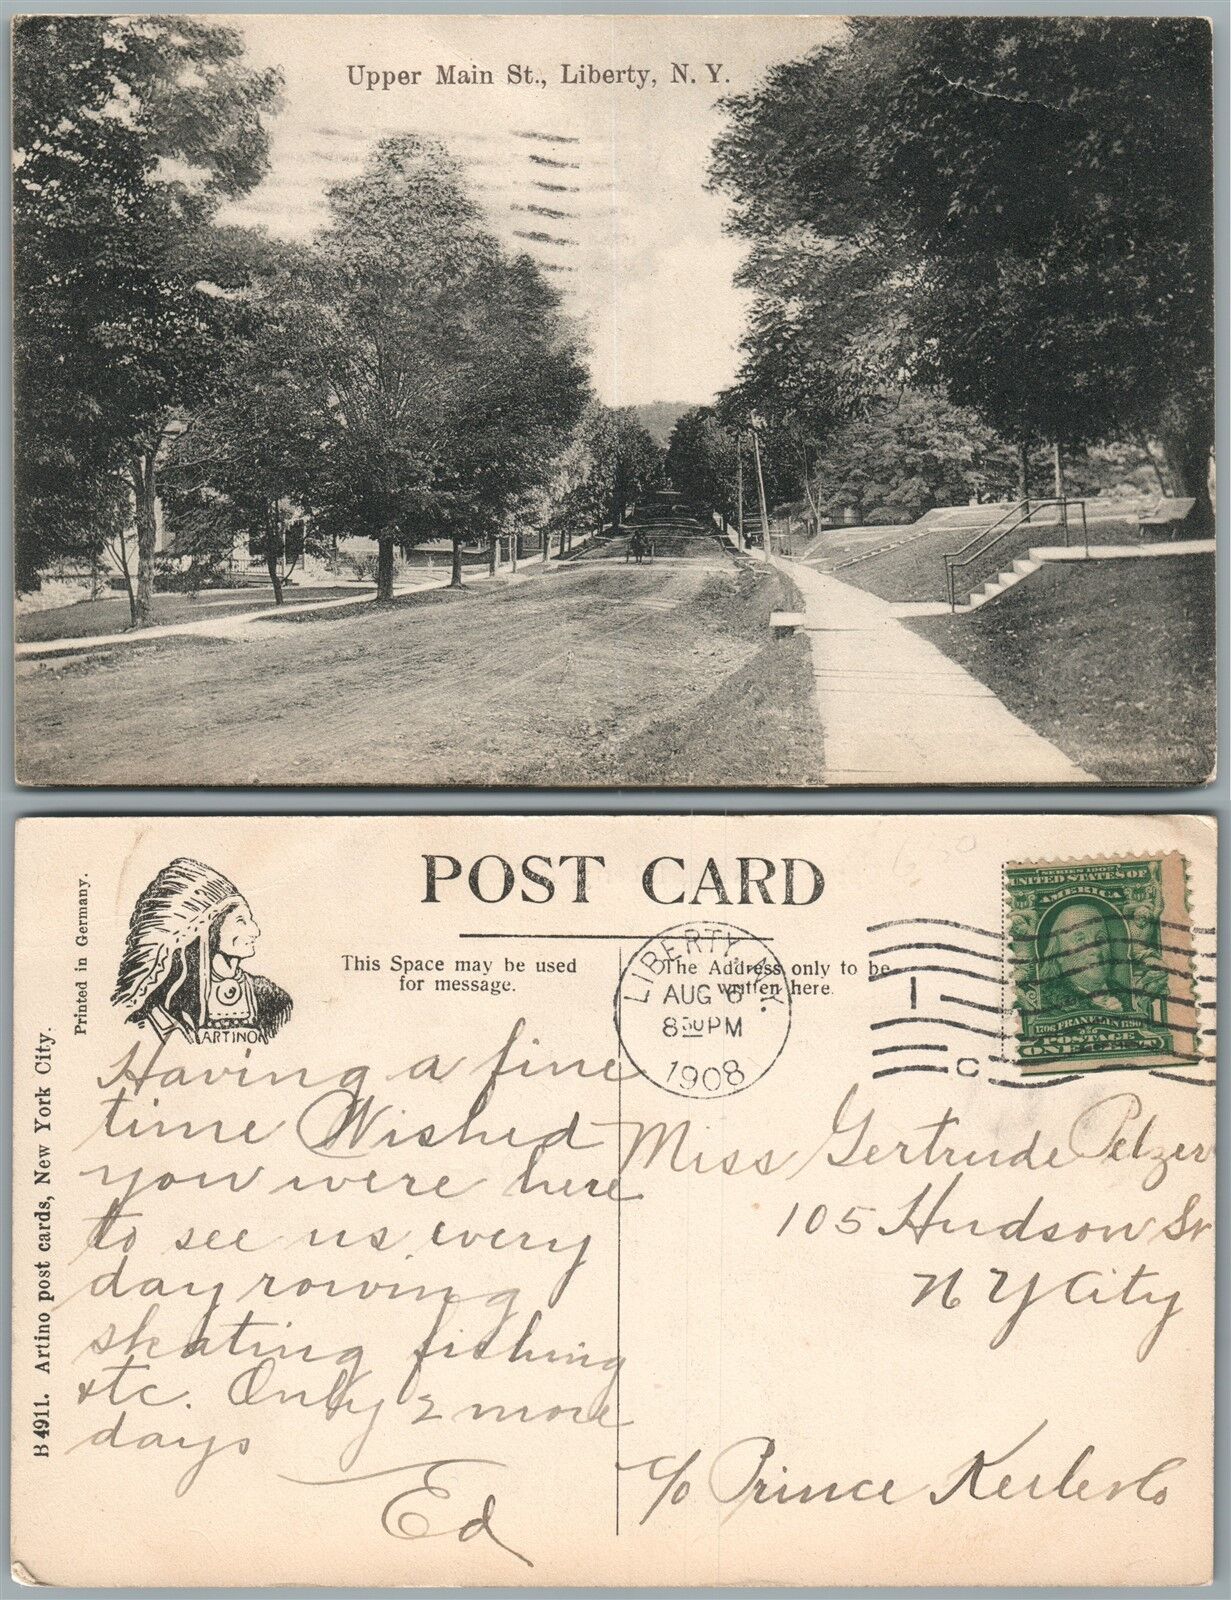 Upper Main St., Liberty, N. Y.
POST CARD
Printed in Germany.
B 4911. Artino post cards, New York City.
ARTINO
This Space may be used
for message.
The Address only to be
written here.
LIBERTY, N.Y.
AUG 6
8 30 PM
1908
1
C
SERIES 1902
UNITED STATES OF
AMERICA
1706 FRANKLIN 1790
POSTAGE
ONE CENT
Having a fine
time Wished
you were here
to see us every
day rowing
skating fishing
etc. Only 2 more
days
Ed
Miss Gertrude Pelzer
105 Hudson St
N Y City
c/o Prince